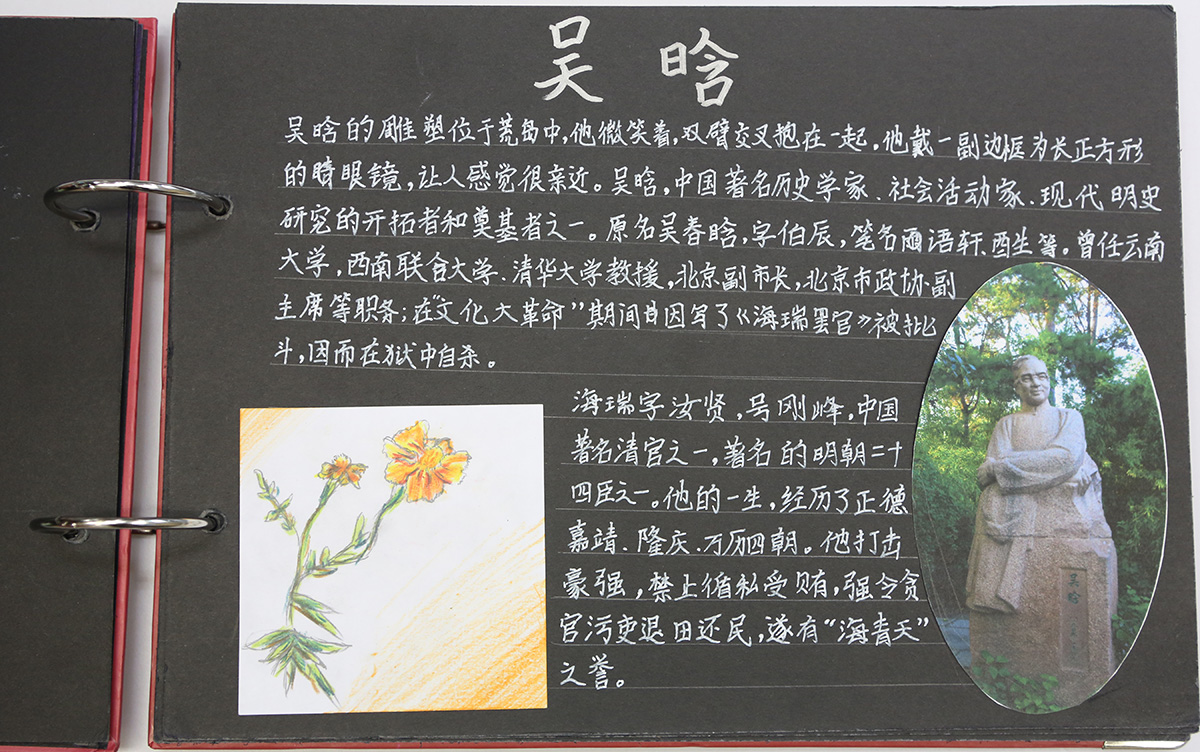 吴晗
吴晗的雕塑位于荒岛中,他微笑着,双臂交叉抱在一起,他戴一副边框为长正方形
的眼镜,让人感觉很亲近。吴晗,中国著名历史学家、社会活动家、现代明史
研究的开拓者和奠基者之一。原名吴春晗,字伯辰,笔名语轩、酉生等。曾任云南
大学,西南联合大学、清华大学教援,北京副市长,北京市政协副
主席等职务;在“文化大革命”期间因写了《海瑞罢官》被批
斗,因而在狱中自杀。
海瑞字汝贤,号刚峰,中国
著名清官之一,著名的明朝二十
四臣之一。他的一生,经历了正德
嘉靖、隆庆、万历四朝。他打击
豪强,禁止循私受贿,强令贪
官污吏退田还民,遂有“海青天”
之誉。
吴晗